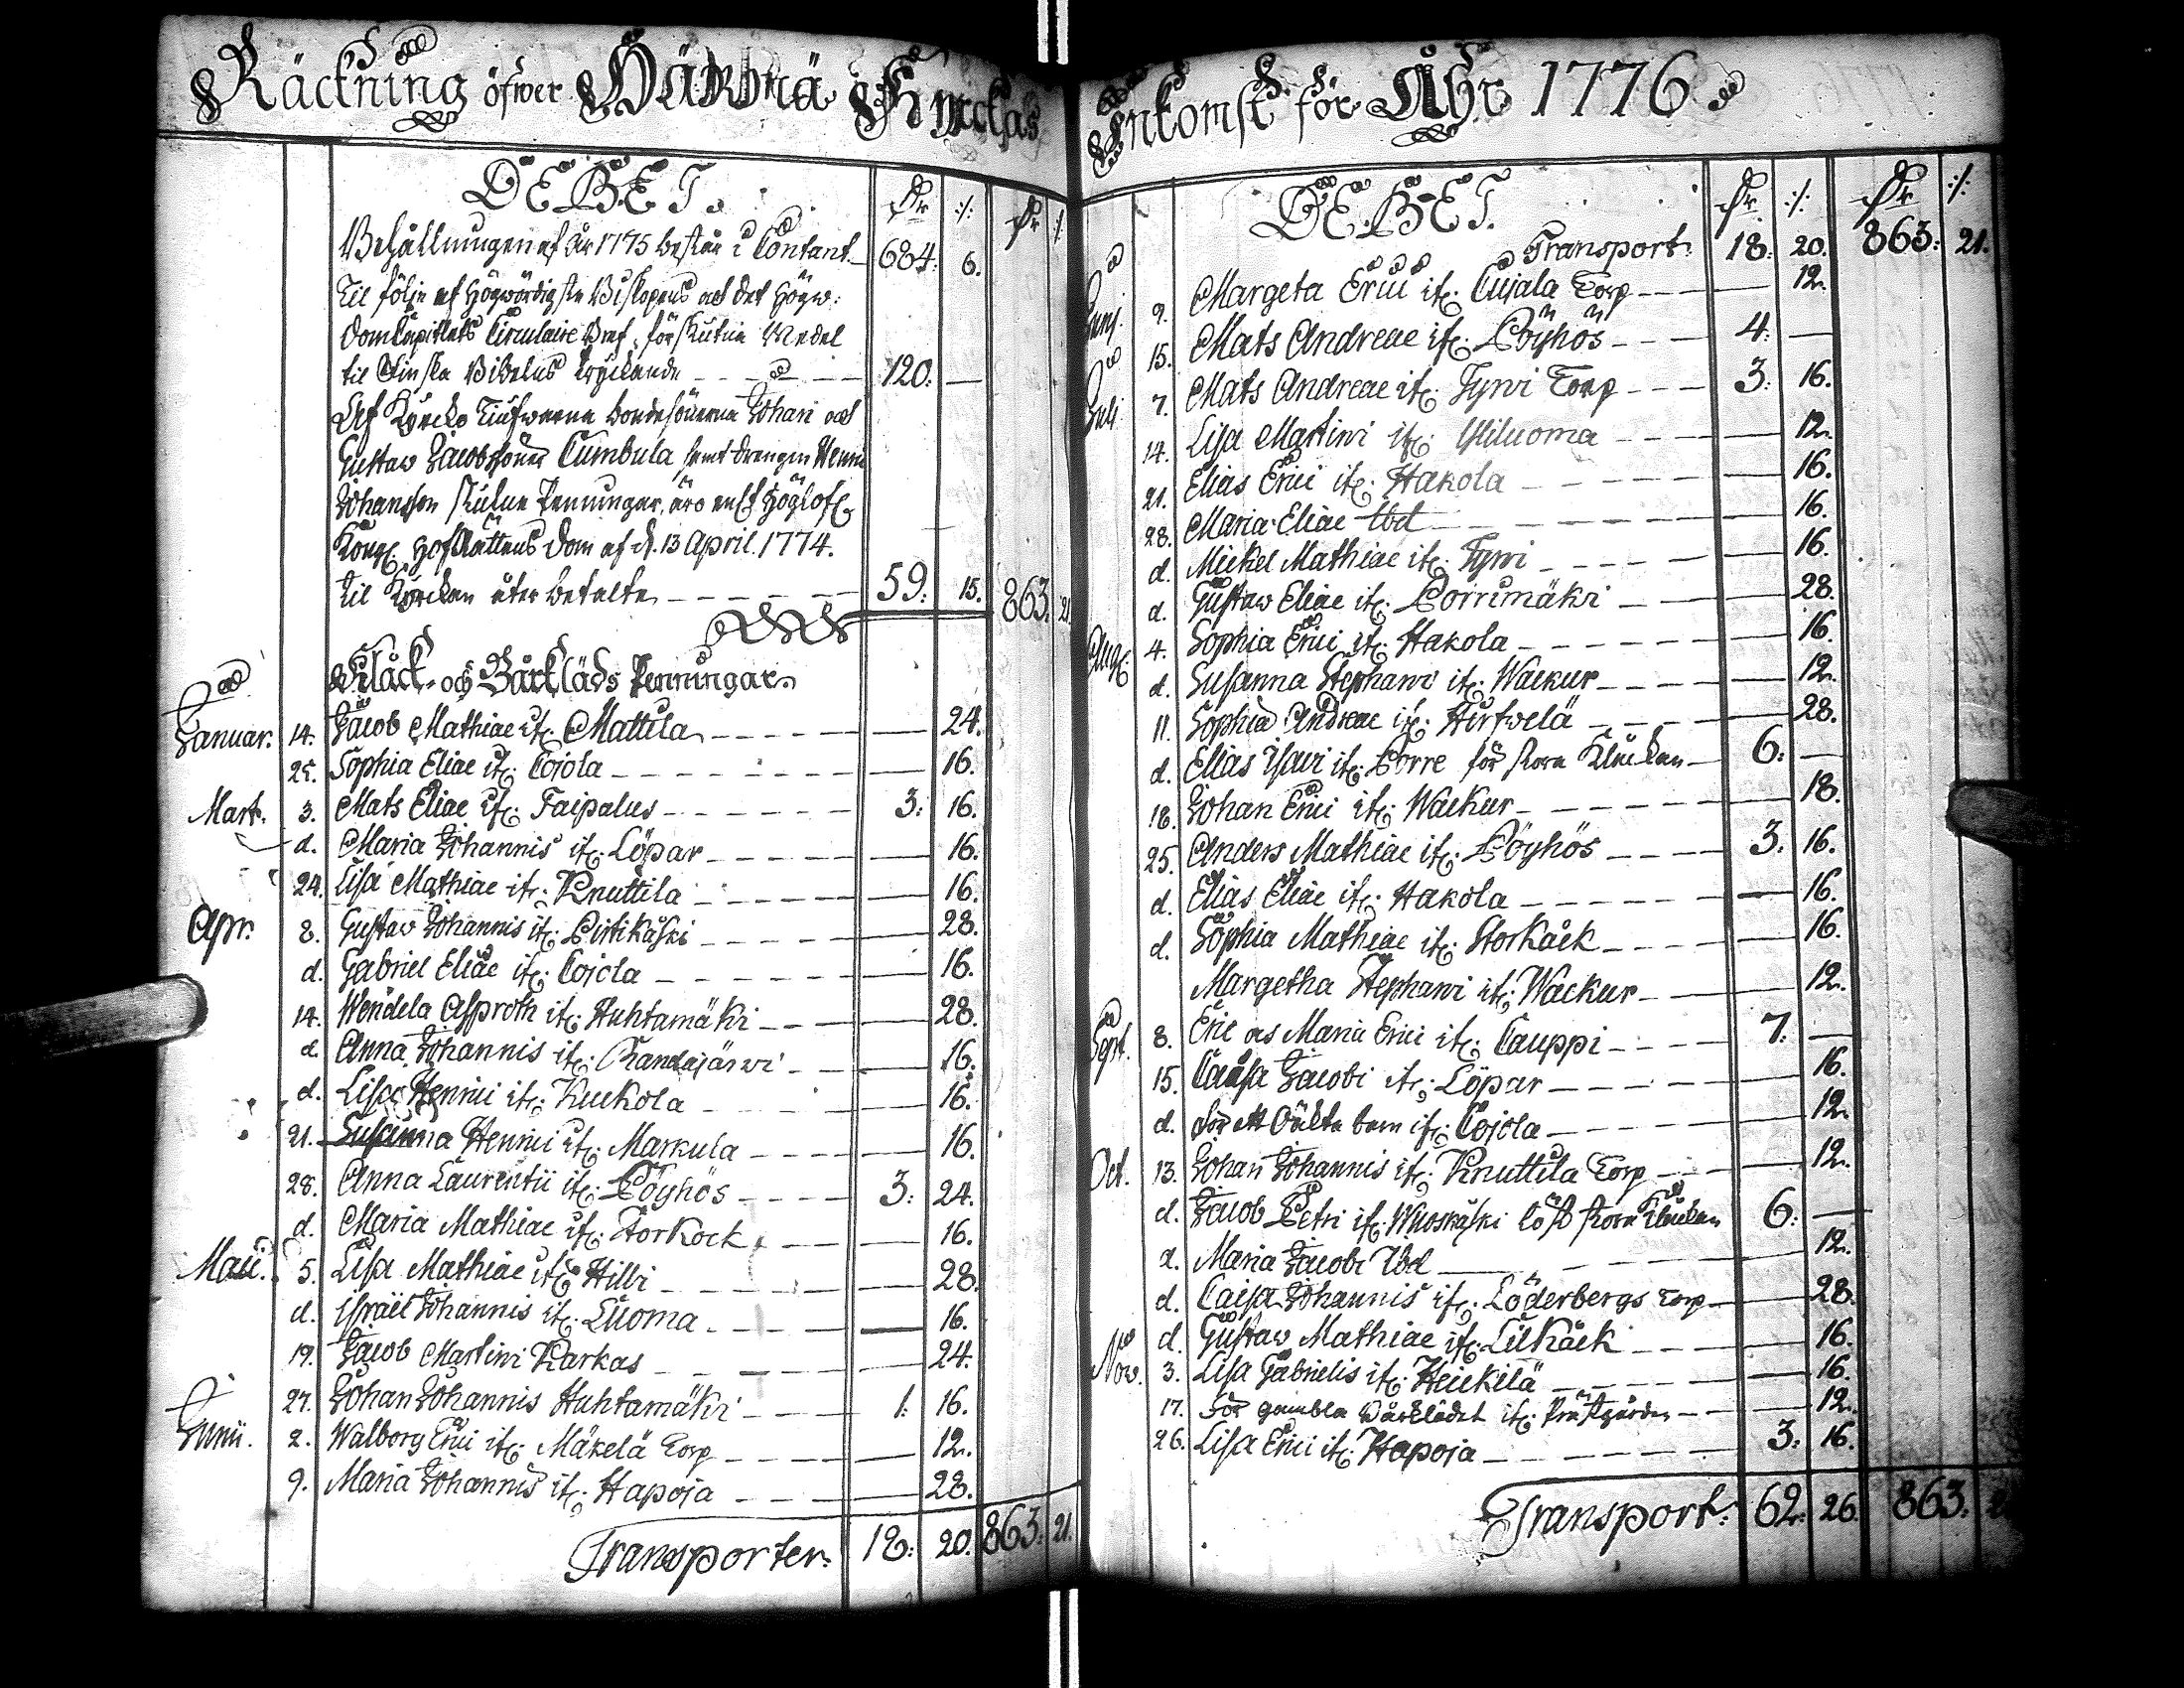 Räckning öfwer Härmä Kyrckas
DEBET.
Dr :/: Dr :/:
Behållningen af år 1775 består i Contant 684: 6.
Til följe af Högwördigste Biskopens och det Högw:
DomCapitlets Circulaire Bref, förskutne Medel
til Finska Bibelns tryckande 120: —
Af Kyrcko Tiufwarna bondesönerna Johan och
Gustaw Jacobssöner Cumbula samt drengen Henric
Johansson stulne Penningar, äro enl: Höglofl:
Kongl: HofRättens Dom af d. 13 April. 1774.
til Kyrckan återbetalte 59: 15. 863: 21.
Klåck- och Bårkläds Penningar.
Januar. 14. Jacob Mathiae if: Mattila — 24.
25. Sophia Eliae if: Cojola — 16.
Mart. 3. Mats Eliae if: Taipalus 3: 16.
d. Maria Johannis if: Löpar — 16.
24. Lisa Mathiae if: Knuttila — 16.
Apr. 8. Gustaw Johannis if: Pistikåski — 28.
d. Gabriel Eliae if: Cojola — 16.
14. Wendela Asproth if: Huhtamäki — 28.
d. Anna Johannis if: Kandajärwi — 16.
d. Lisa Henrici if: Kuckola — 16.
21. Susanna Henrici if: Markula — 16.
28. Anna Laurentii if: Pöyhös 3: 24.
d. Maria Mathiae if: Storkock — 16.
Maii. 5. Lisa Mathiae if: Hilli — 28.
d. Israel Johannis if: Luoma — 16.
19. Jacob Martini Karkas — 24.
27. Johan Johannis Huhtamäki 1: 16.
Junii. 2. Walborg Erici if: Mäkelä Torp — 12.
9. Maria Johannis if: Hapoja — 28.
Transporter. 18: 20. 863: 21.
Inkomst för Åhr 1776
DEBET.
Dr :/: Dr :/:
Transport: 18: 20. 863: 21.
Junj. 9. Margeta Erici if: Cujala Torp — 12.
15. Mats Andreae if: Pöyhös 4: —
Juli 7. Mats Andreae if: Tyni Torp 3: 16.
14. Lisa Martini if: Yliluoma — 12.
21. Elias Erici if: Hakola — 16.
28. Maria Eliae Ibd — 16.
d. Mickel Mathiae if: Tyni — 16.
d. Gustaw Eliae if: Porrimäki — 28.
Aug: 4. Sophia Erici if: Hakola — 16.
d. Susanna Stephani if: Wackur — 12.
11. Sophia Andreae if: Hirfwelä — 28.
d. Elias Isaci if: Porre för stora Klåckan 6: —
18. Johan Erici if: Wackur — 18.
25. Anders Mathiae if: Pöyhös 3. 16.
d. Elias Eliae if: Hakola — 16.
d. Sophia Mathiae if: Storkåck — 16.
Margetha Stephani if: Wackur — 12.
Sept. 8. Eric och Maria Erici if: Cauppi 7. —
15. Caisa Jacobi if: Löpar — 16.
d. För ett Oäkta barn if: Cojola — 12.
Oct. 13. Johan Johannis if: Knuttila Torp — 12.
d. Jacob Petri if: Wuoskåski löst stora Klåckan 6: —
d. Maria Jacobi Ibd — 12.
d. Caisa Johannis if: Söderbergs Torp — 28.
d. Gustaw Mathiae if: Lilkåck — 16.
Nov. 3. Lisa Gabrielis if: Heickilä — 16.
17. För gambla Bårklädet if: Prästgården — 12.
26. Lisa Erici if: Hapoja 3: 16.
Transport: 62: 26. 863: